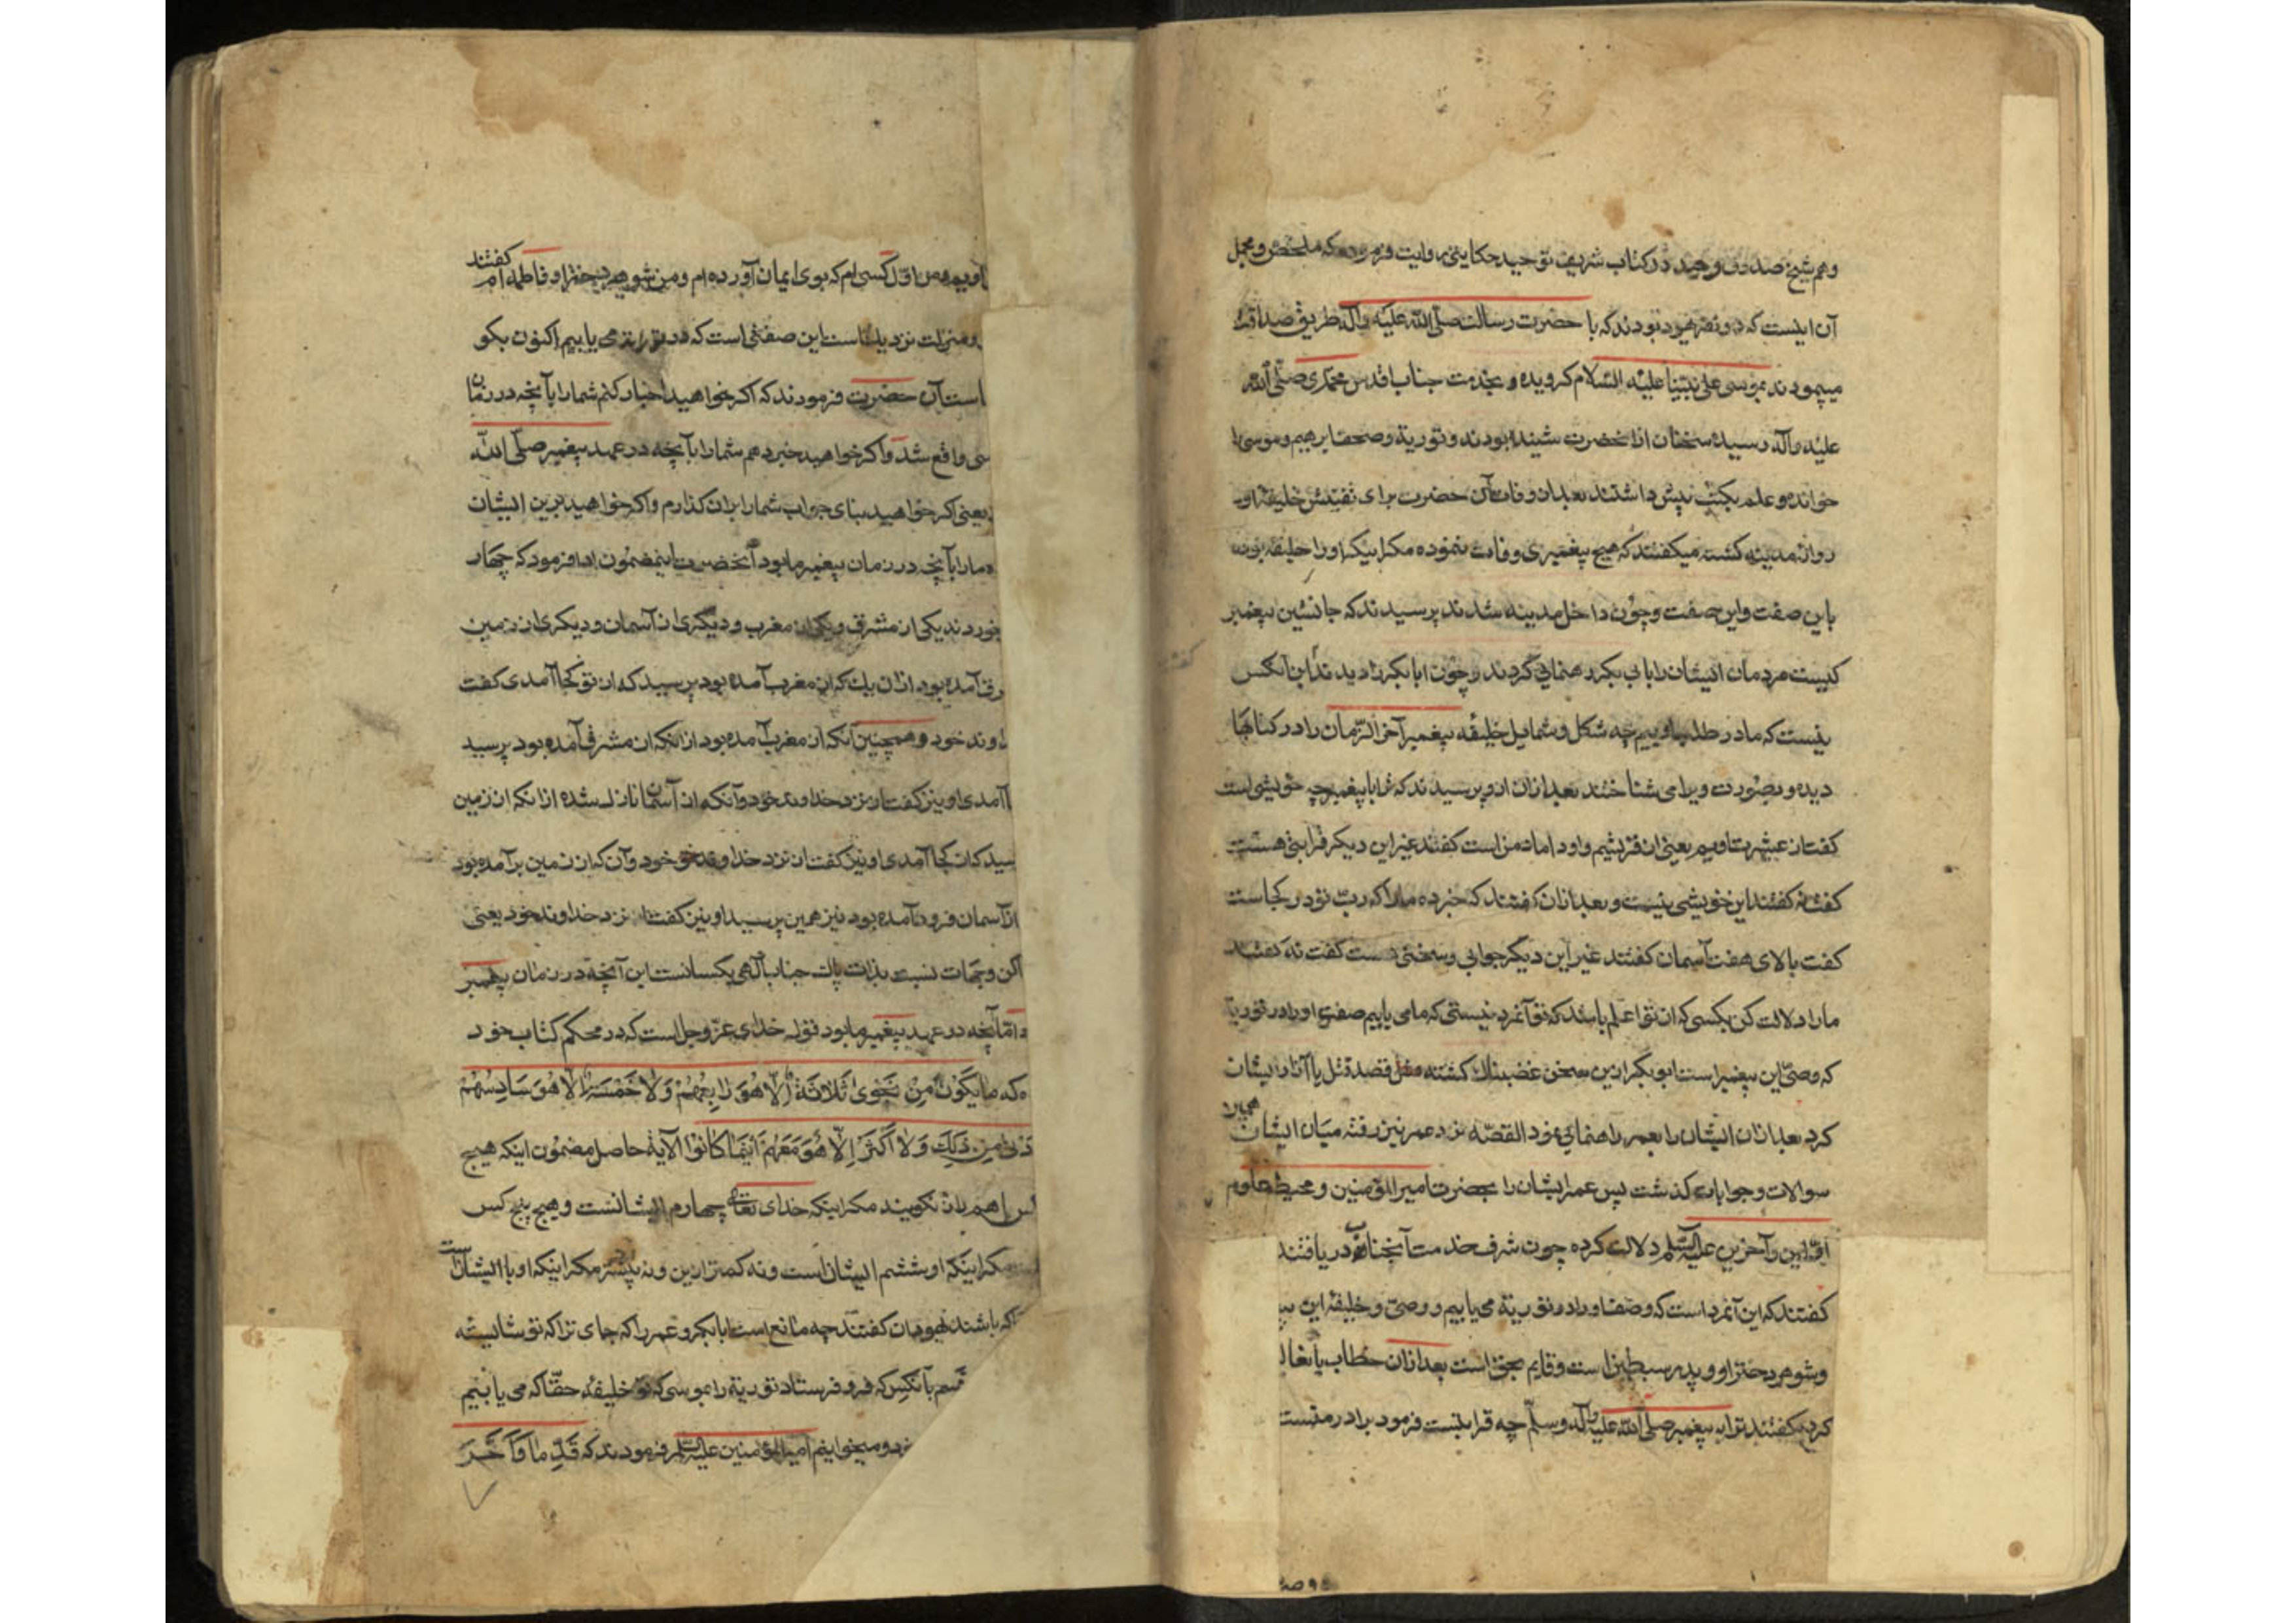 وهم شیخ صدوق وحید در کتاب شریف توحید حکایتی روایت فرموده که ملخص و مجمل
آن اینست که دو نفر یهود بودند که با حضرت رسالت صلّی اللّه علیه وآله طریق صداقت
میپمودند بموسی علی نبیّنا علیه السّلام کرویده و بخدمت جناب اقدس محمّدی صلّی اللّه
علیه وآله رسیده سخنان ازانحضرت شنیده بودند و توریة وصحف ابرهیم وموسی را
خوانده و علم بکتب پیش داشتند بعد ازوفات آن حضرت برای تفتیش خلیفهٔ او
روانه مدینه کشته میکفتند که هیچ پیغمبری وفات ننموده مکر اینکه او را خلیفه بوده
باین صفت واین صفت وچون داخل مدینه شدند پرسیدند که جانشین پیغمبر
کیست مردمان ایشان را بابی بکر رهنمایی کردند وچون ابابکر را دیدند این آنکس
نیست که مادر طلب اوییم چه شکل وشمایل خلیفه پیغمبر آخر الزّمان را در کتابها
دیده وبصورت ویرا می شناختند بعد ازان ازو پرسیدند که ترا با پیغمبر چه خویشی است
کفت از عشیرت اویم یعنی از قریشیم واو داماد من است کفتند غیر این دیکر قرابتی هست
کفت نه کفتند این خویشی نیست وبعد ازان کفتند که خبر ده مارا که ربّ تو در کجاست
کفت بالای هفت آسمان کفتند غیر این دیکر جوابی وسخنی هست کفت نه کفتند
مارا دلالت کن بکسی که از تو اعلم باشد که تو آنمرد نیستی که مامی یابیم صفت او را در توریة
که وصیّ این پیغمبر است ابو بکر ازین سخن غضبناک کشته قصد قتل یا آزار ایشان
کرد بعد ازان ایشان را بعمر راهنمایی نمود القصّه نزد عمر نیز رفته میان ایشان همین
سوالات وجوابات کذشت پس عمر ایشان را بحضرت امیر المؤمنین و محیط علوم
اوّلین وآخرین علیه السّلم دلالت کرده چون شرف خدمت آنجناب دریافتند
کفتند که این آنمرد است که وصف او را در توریة می یابیم و وصیّ و خلیفهٔ این
وشوهر دختر او و پدر سبطین است وقایم بحق است بعد ازان خطاب بانعا
کرده کفتند ترا به پیغمبر صلّی اللّه علیه وآله وسلّم چه قرابتست فرمود برادر منست
من اوّل کسی ام که بوی ایمان آورده ام ومن شوهر دختر او فاطمه ام کفتند
ومنزلت نزدیک است این صفتی است که در توریة می یابیم اکنون بکو
است آن حضرت فرمودند که اکر خواهید اخبار کنم شمارا بآنچه در زمان
شد واکر خواهید خبر دهم شمارا بآنچه در عهد پیغمبر صلّی اللّه
یعنی اکر خواهید بنای جواب شمارا بران کذارم واکر خواهید برین ایشان
مارا بآنچه در زمان پیغمبر مابود آنحضرت باینمضمون ادا فرمود که چهار
خوردند یکی از مشرق ویکی از مغرب ودیگری از آسمان ودیکری از زمین
آمده بود ازان یک که از مغرب آمده بود پرسید که از تو کجا آمدی کفت
خود وهمچنین آنکه از مغرب آمده بود ازانکه از مشرق آمده بود پرسید
آمدی او نیز کفت از نزد خداوند خود وآنکه از آسمان نازل شده ازانکه از زمین
کجا آمدی او نیز کفت از نزد خداوند خود وآن که از زمین برآمده بود
ازآسمان فرود آمده بود نیز همین پرسید او نیز کفت از نزد خداوند خود یعنی
وجهات نسبت بذات پاک جناب الهی یکسانست این آنچه در زمان پیغمبر
وامّا آنچه در عهد پیغمبر مابود قول خدای عزّ وجل است که در محکم کتاب خود
که مَا یَکُونُ مِنْ نَجْوَی ثَلَاثَةٍ اِلَّا هُوَ رَابِعُهُمْ وَلَا خَمْسَةٍ اِلَّا هُوَ سَادِسُهُمْ
مِنْ ذٰلِکَ وَلَا اَکْثَرَ اِلَّا هُوَ مَعَهُمْ اَیْنَمَا کَانُوا الآیة حاصل مضمون اینکه هیچ
هم راز نکویند مکر اینکه خدای تعالی چهارم ایشانست وهیچ پنج کس
مکر اینکه او ششم ایشان است ونه کمتر ازین ونه بیشتر مکر اینکه او با ایشان است
که باشند یهودیان کفتند چه مانع است ابابکر وعمر را که جای ترا که تو شایسته
قسم بآنکس که فرو فرستاد توریة را بموسی که تو خلیفهٔ حقّا که می یابیم
ومیخوانیم امیر المؤمنین علیه السّلم فرمودند که قَدَّمَا وَاَخَّرَ